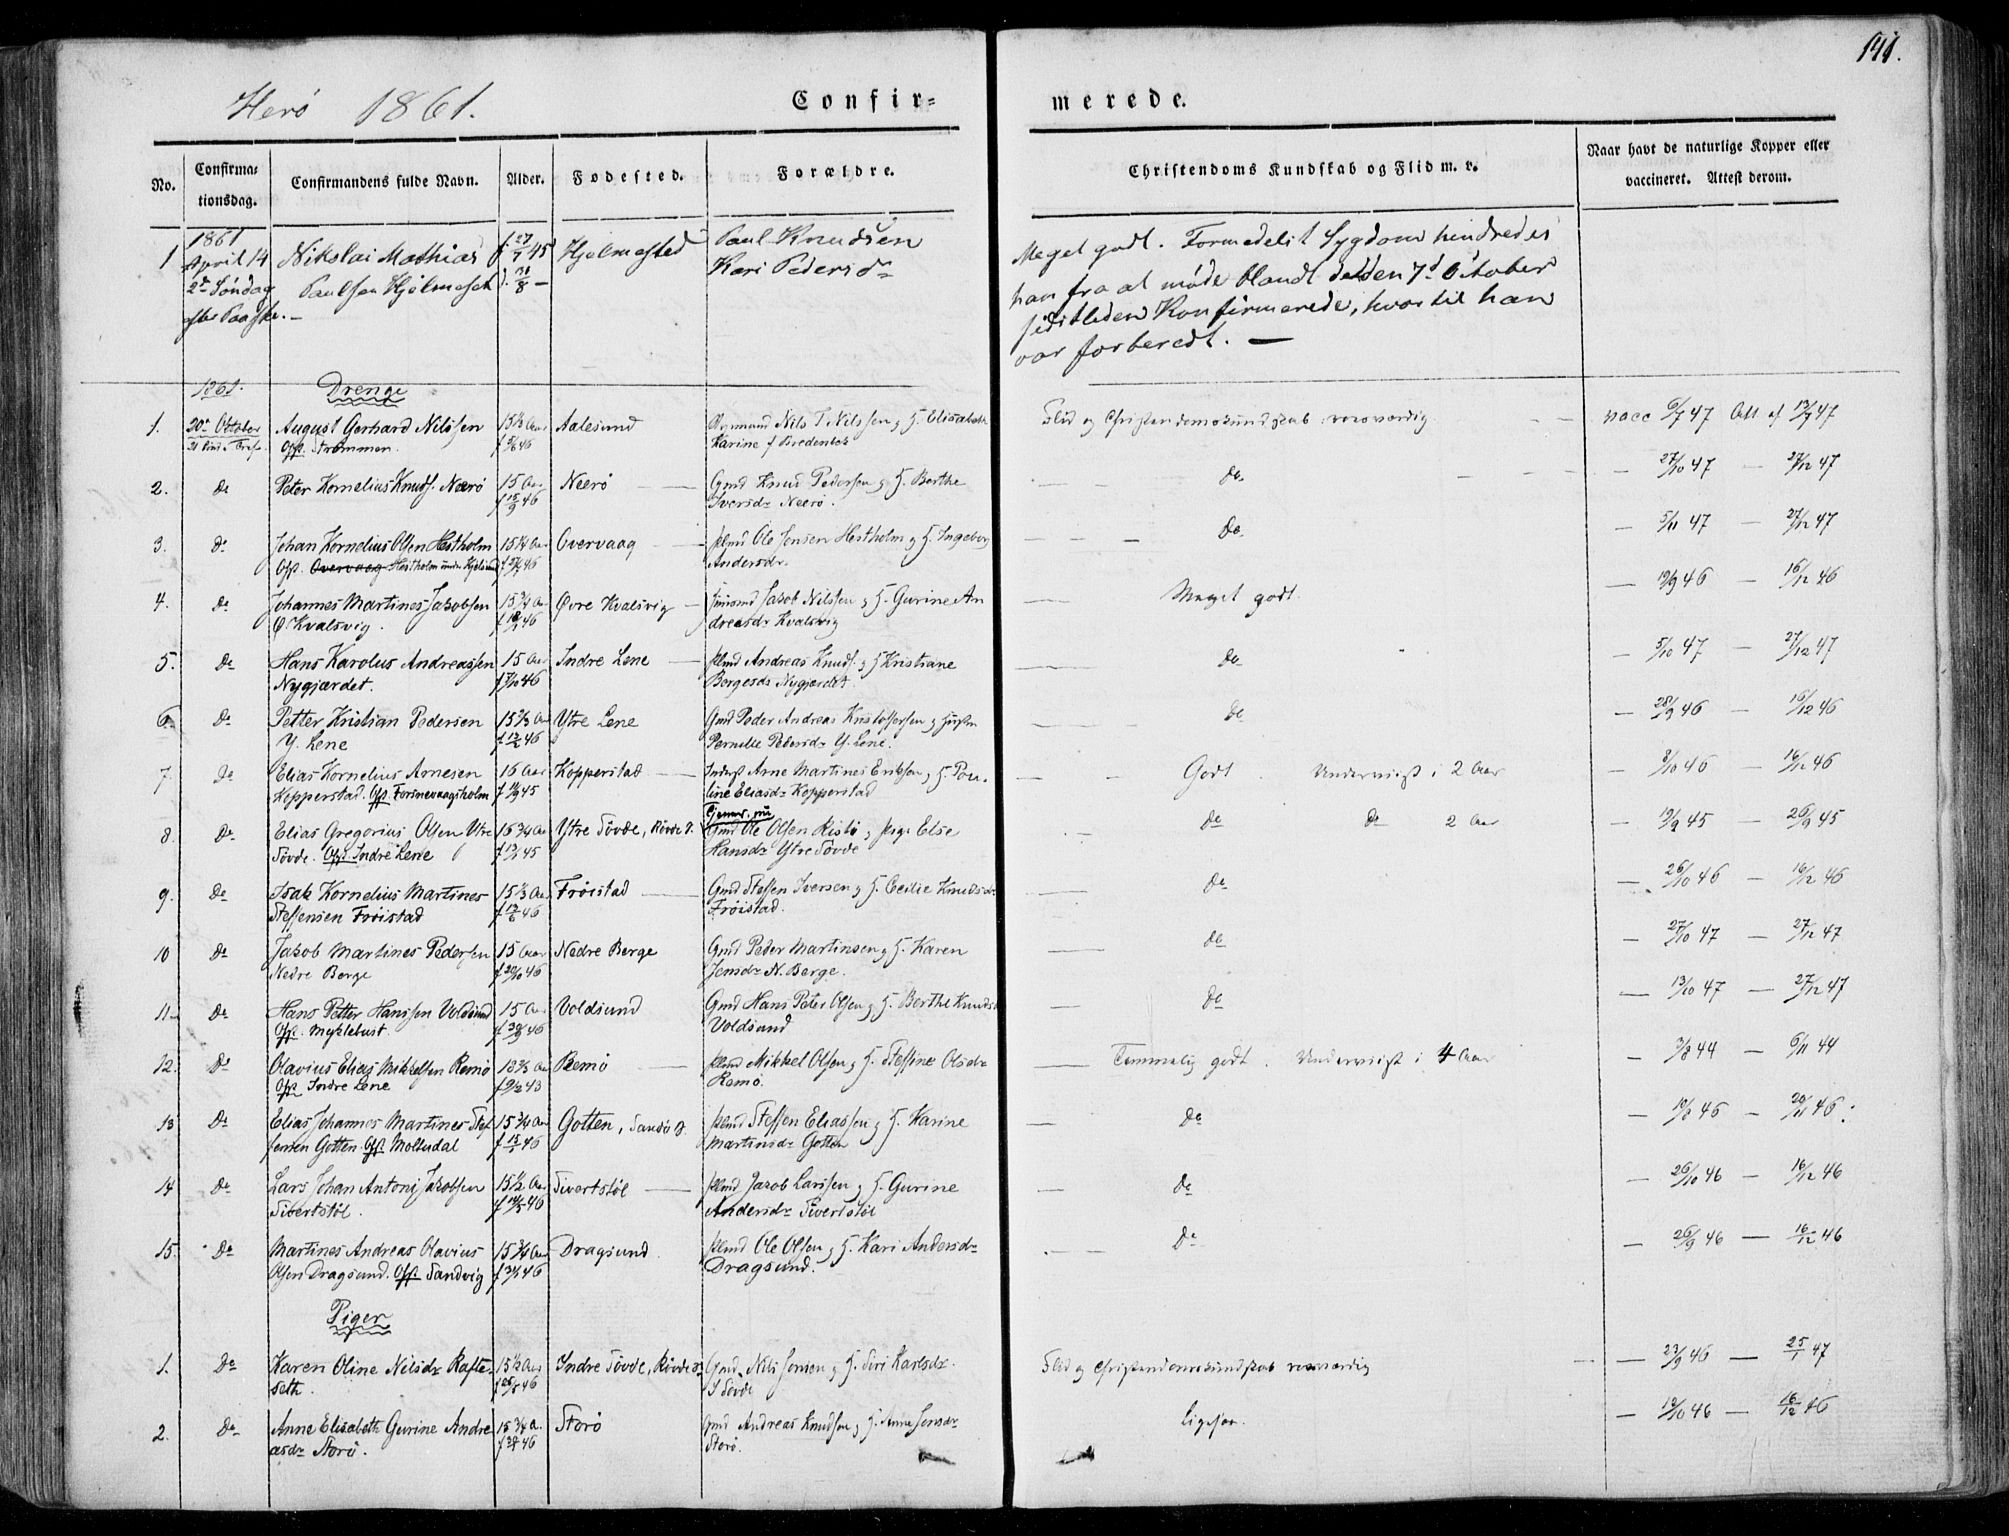 141.
Herø 1861.
Confir=
merede.
No.
Confirma-
tionsdag.
Confirmandens fulde Navn.
Alder.
Fødested.
Forældre.
Christendoms Kundskab og Flid m. v.
Naar havt de naturlige Kopper eller
vaccineret. Attest derom.
1 1861 April 14 2den Søndag efter Paaske. Nikolai Mathias Paulsen Hjelmeset f. 27/7 45 Hjelmested Paul Knudsen Kari Pedersdr
Meget godt. Formedelst Sygdom hindredes
han fra at møde blandt de den 7d October
sidstleden Konfirmerede, hvortil han
var forberedt. —
1861. Drenge
1. 20de October August Gerhard Nilssen Ofst. Strømmen. 15 1/3 Aar f 5/6 46 Aalesund Nils T Nilssen g H. Elisabeth Karine f Bredenbek Flid og Christendomskundskab roesværdig vacc 6/7 47 Att af 13/7 47
2. Do Peter Kornelius Knuds. Nærø 15 Aar f 15/9 46 Neerø Gmd Knud Pedersen g H. Berthe Iversdr Neerø. Do — 27/10 47 — 27/12 47
3. Do Johan Kornelius Olsen Hestholm Ofst. Overvaag Hestholm 15 1/4 Aar Overvaag Plmd Ole Jensen Hestholm g H. Ingeborg Andersdr. Do — 5/11 47 — 27/12 47
4. Do Johannes Martines Jakobsen Ø Kvalsvig. 15 3/4 Aar f 18/1 46 Øvre Kvalsvig Jakob Nilssen g H. Gurine Andreasdr Kvalsvig Meget godt. — 19/9 46 — 16/12 46
5. Do Hans Karolus Andreassen Nygjærdet. 15 Aar f 17/10 46 Indre Lene Plmd Andreas Knuds. g H Kristiane Borgesdr Nygjærdet. Do — 5/10 47 — 27/12 47
6. Do Petter Kristian Pedersen Y. Lene 15 2/3 Aar f 13/2 46 Ytre Lene Gmd Peder Andreas Kristoffersen g Pernille Pedersdr Y. Lene. Do — 28/9 46 — 16/12 46
7 Do Elias Kornelius Arnesen Kopperstad. Ofst. 16 Aar f 11/9 45 Kopperstad Inderst Arne Martines Eriksen g H. Pouline Eliasdr Kopperstad Godt. Underviist i 2 Aar — 8/10 46 — 16/12 46
8. Do Elias Gregorius Olsen Ytre Søvde. Ofst Indre Lene 16 3/4 Aar f 13/1 45 Ytre Søvde, Røvde S. Gmd Ole Olsen Ristø g Else Hansdr Ytre Søvde Do Do 2 Aar — 19/9 45 — 26/9 45
9. Do Isak Kornelius Martines Steffensen Frøistad 15 1/3 Aar f 13/6 46 Frøistad Gmd Steffen Iversen g H. Cecilie Knudsdr Frøistad. Do — 26/10 46 — 16/12 46
10 Do Jakob Martines Pedersen Nedre Berge 15 Aar f 20/10 46 Nedre Berge Gmd Peder Martinsen g H. Karen Jensdr N. Berge. Do — 27/10 47 — 27/12 47
11 Do Hans Petter Hanssen Voldsund Ofst. Myklebust. 15 Aar f 30/9 46 Voldsund Gmd Hans Peter Olsen g H. Berthe Knudsd Voldsund Do — 13/10 47 — 27/12 47
12. Do Olavius Elias Mikkelsen Remø Ofst Indre Lene 18 2/3 Aar Remø Plmd Mikkel Olsen g H. Steffine Olsdr Remø. Temmelig godt. Underviist i 4 Aar — 9/8 44 — 6/11 44
13 Do Elias Johannes Martines Steffensen Gotten. Ofst. Moltudal 15 3/4 Aar f 13/1 46 Gotten, Sandø S. Plmd Steffen Eliassen g H. Karine Martinsdr Gotten Do — 10/8 46 — 20/11 46.
14 Do Lars Johan Antoni Jakobsen Sivertstøl. 15 1/2 Aar f 14/5 46 Sivertstøl Plmd Jacob Larssen g H. Gurine Andersdr Sivertstøl Do — 26/10 46 — 16/12 46
15. Do Martines Andreas Olavius Olsen Dragsund. Ofst. Sandvig 15 3/4 Aar f 31/1 46 Dragsund. Plmd Ole Olsen g H. Kari Andersdr Dragsund. Do — 26/9 46 — 16/12 46
Piger
1. Do Karen Oline Nilsdr Rafteseth. 15 1/2 Aar f 26/5 46 Indre Søvde, Røvde S. Gmd. Nils Jensen g H. Siri Karlsdr. I Søvde Flid og Christendomskundskab roesværdig — 23/9 46 — 25/1 47
2. Do Anne Elisabeth Gurine Andreasdr Storø. 15 3/4 A. Storø Gmd Andreas Knudsen g H. Anne Jensdr Storø. ligesaa. — 19/10 46 — 16/12 46